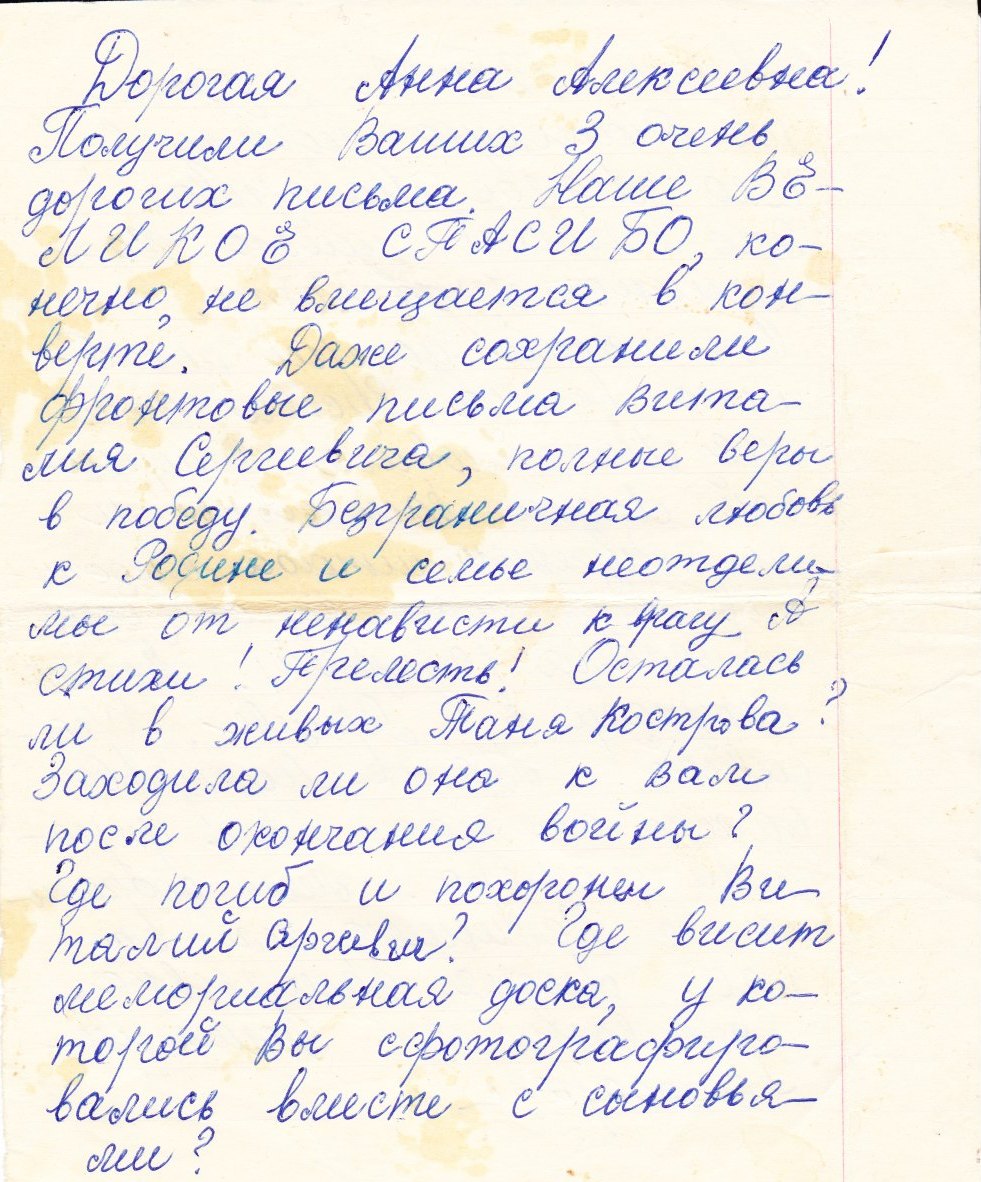 Дорогая Анна Алексеевна!
Получили Ваших 3 очень
дорогих письма. Наше ВЕ-
ЛИКОЕ СПАСИБО, ко-
нечно, не вмещается в кон-
верте. Даже сохранили
фронтовые письма Вита-
лия Сергеевича, полные веры
в победу. Безграничная любовь
к Родине и семье неотдели-
мы от ненависти к врагу. А
стихи! Прелесть! Осталась
ли в живых Таня Кострова?
Заходила ли она к вам
после окончания войны?
Где погиб и похоронен Ви-
талий Сергеевич? Где висит
мемориальная доска, у ко-
торой Вы сфотографиро-
вались вместе с сыновья-
ми?